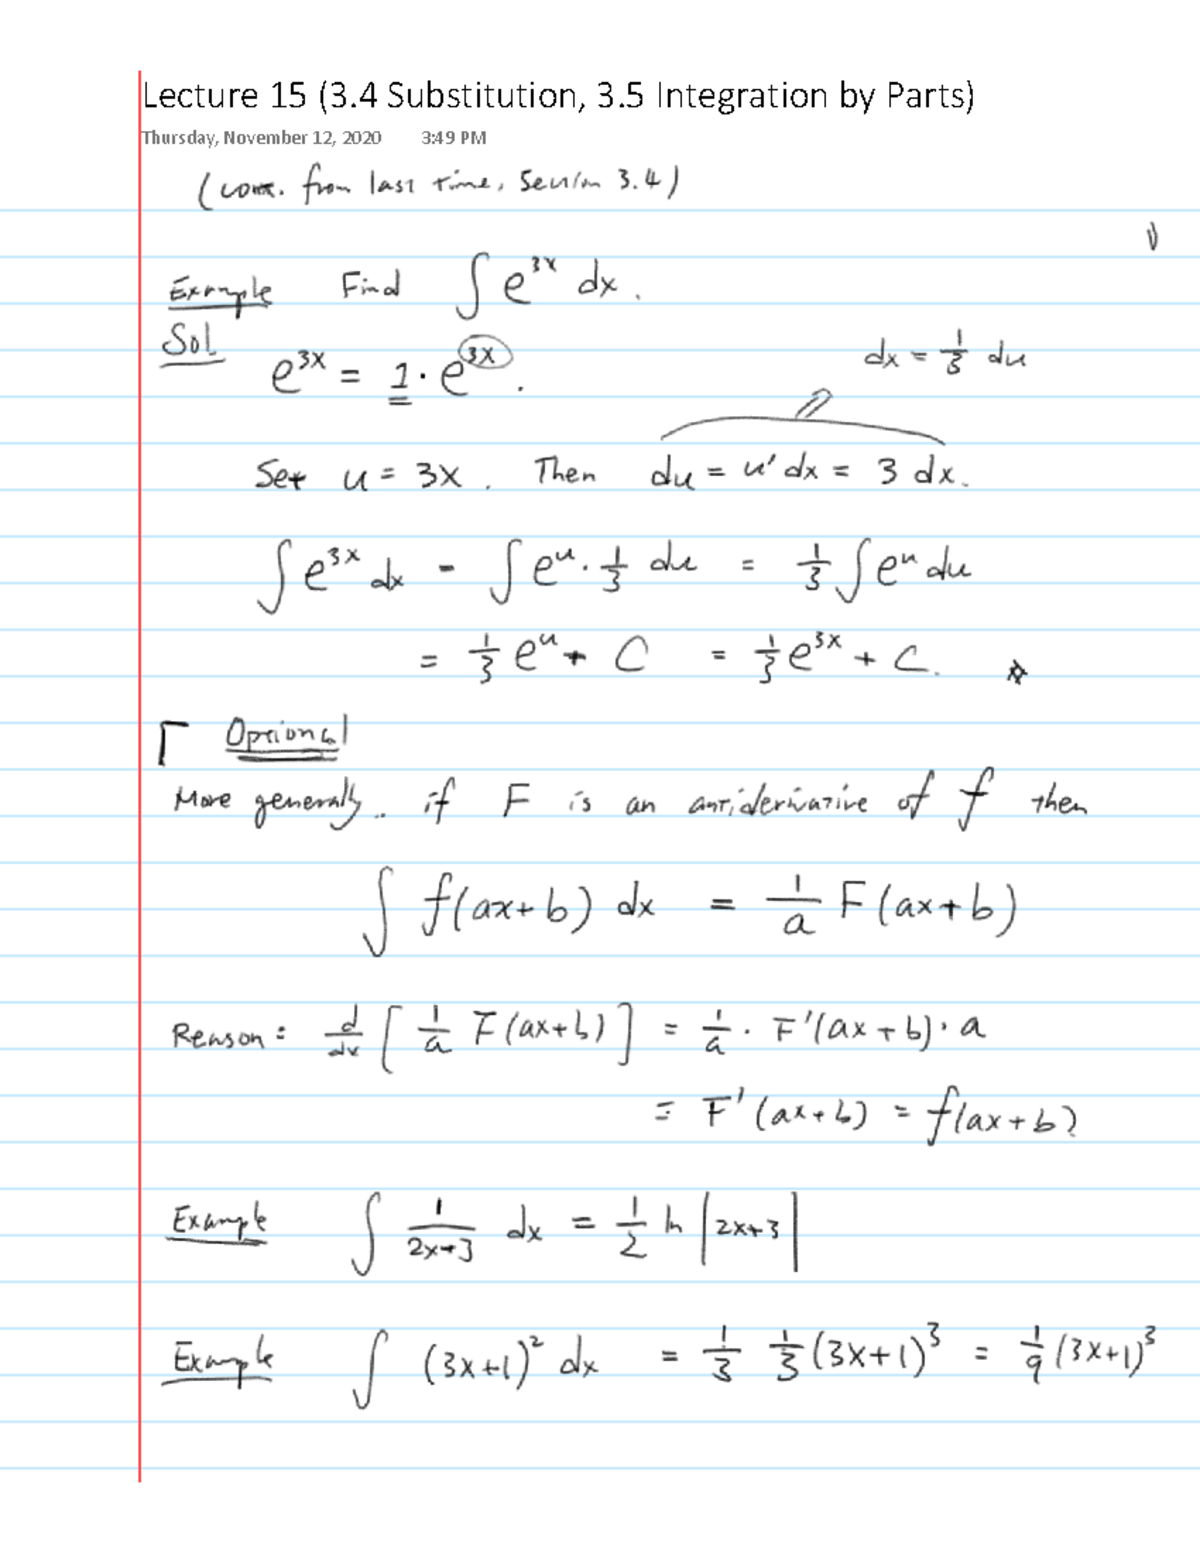 Lecture 15 (3.4 Substitution, 3.5 Integration by Parts)
Thursday, November 12, 2020 3:49 PM
(cont. from last time, Section 3.4)
Example Find ∫ e^{3x} dx.
Sol
e^{3x} = 1 · e^{3x}.
dx = 1/3 du
Set u = 3x. Then du = u' dx = 3 dx.
∫ e^{3x} dx = ∫ e^u · 1/3 du = 1/3 ∫ e^u du
= 1/3 e^u + C = 1/3 e^{3x} + C.
Optional
More generally. if F is an antiderivative of f then
∫ f(ax+b) dx = 1/a F(ax+b)
Reason: d/dx [1/a F(ax+b)] = 1/a · F'(ax+b) · a
= F'(ax+b) = f(ax+b)
Example ∫ 1/(2x+3) dx = 1/2 ln |2x+3|
Example ∫ (3x+1)^2 dx = 1/3 1/3 (3x+1)^3 = 1/9 (3x+1)^3